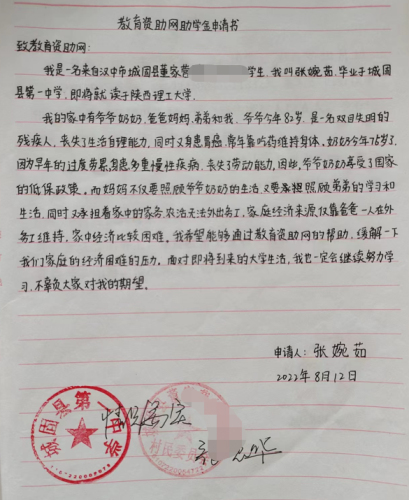 教育资助网助学金申请书
致教育资助网:
我是一名来自汉中市城固县董家营 学生,我叫张婉茹,毕业于城固
县第一中学,即将就读于陕西理工大学。
我的家中有爷爷奶奶,爸爸妈妈,弟弟和我,爷爷今年82岁,是一名双目失明的
残疾人,丧失了生活自理能力,同时又身患胃癌,常年靠吃药维持身体。奶奶今年75岁了,
因为早年的过度劳累,身患多重慢性疾病,丧失了劳动能力,因此,爷爷奶奶享受了国家
的低保政策。而妈妈不仅要照顾爷爷奶奶的生活,又要承担照顾弟弟的学习和
生活,同时又承担着家中的家务、农活无法外出务工,家庭经济来源仅靠爸爸一人在外
务工维持,家中经济比较困难。我希望能够通过教育资助网的帮助,缓解一下
我们家庭的经济困难的压力。面对即将到来的大学生活,我也一定会继续努力学
习,不辜负大家对我的期望。
申请人:张婉茹
2022年8月12日
城固县第一中学
情况属实
村民委员会